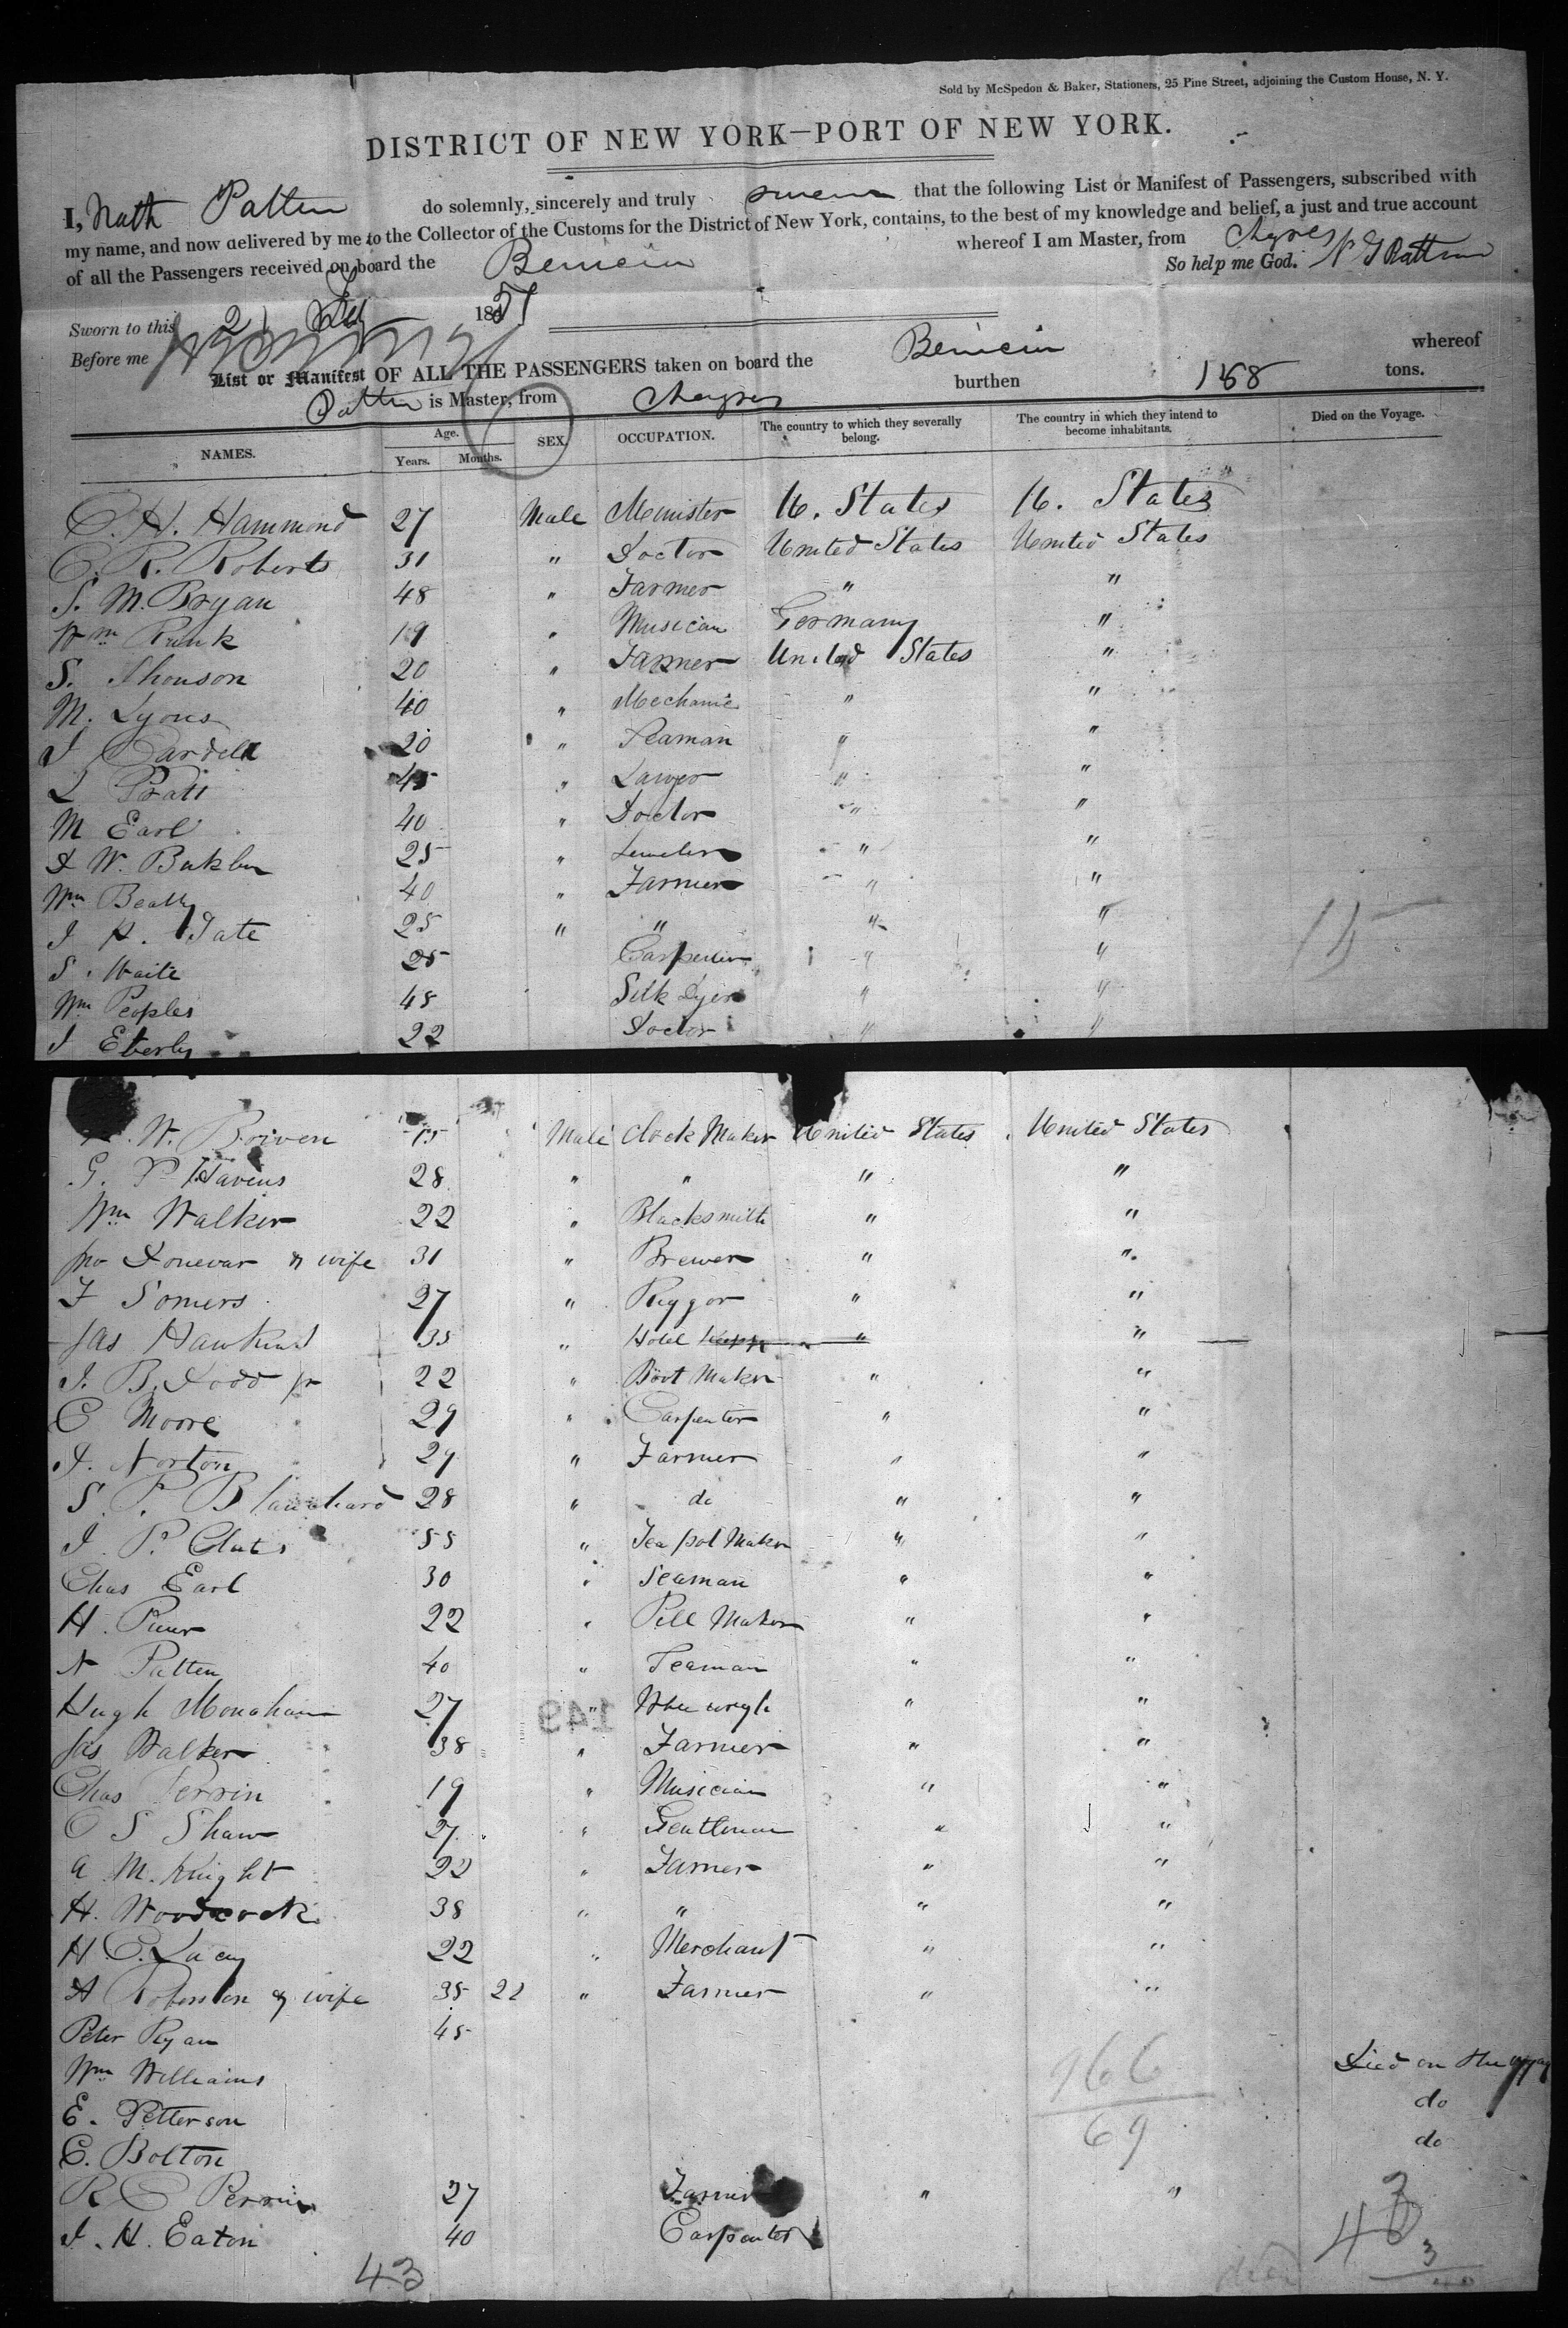 Sold by McSpedon & Baker, Stationers, 25 Pine Street, adjoining the Custom House, N. Y.
DISTRICT OF NEW YORK—PORT OF NEW YORK.
I, Nath Patten do solemnly, sincerely and truly swear that the following List or Manifest of Passengers, subscribed with
my name, and now delivered by me to the Collector of the Customs for the District of New York, contains, to the best of my knowledge and belief, a just and true account
of all the Passengers received on board the Benicia whereof I am Master, from Chagres
So help me God. N G Patten
Sworn to this 21 July 1851
Before me
List or Manifest OF ALL THE PASSENGERS taken on board the Benicia whereof
Patten is Master, from Chagres burthen 158 tons.
NAMES. Age. Years. Months. SEX. OCCUPATION. The country to which they severally belong. The country in which they intend to become inhabitants. Died on the Voyage.
C. H. Hammond 27 Male Menister U. States U. States
C. R. Roberts 31 " Doctor United States United States
S. M. Bryan 48 " Farmer " "
Wm Runk 19 " Musician Germany "
S. Thonson 20 " Farmer United States "
M. Lyons 40 " Mechanic " "
J Cardell 20 " Seaman " "
L Pratt 45 " Lawyer " "
M Earl 40 " Doctor " "
25 " " "
Wm Beatty 40 " Farmer " "
J H. Tate 25 " " " "
S. Waite 25 Carpenter " "
Wm Peoples 48 Silk Dyer " "
J Eberly 22 Doctor " "
15
W. Boiven Male Clock Maker United States United States
G. P Havens 28 " " " "
Wm Walker 22 " Blacksmith " "
Jno Donevar & wife 31 " Brewer " "
F Somers 27 " Riggor " "
Jas Hawkins 35 " Hotel " "
J. B. Dodd Jr 22 " Boot Maker " "
C Moore 29 " Carpenter " "
J. Norton 29 " Farmer " "
S. P. Blanchard 28 " do " "
J. P. Cluts 55 " Tea pot Maker " "
Chas Earl 30 " Seaman " "
H. 22 " Pill Maker " "
N Patten 40 " Seaman " "
Hugh Monahan 27 " " "
149
Jas Walker 38 " Farmer " "
Chas Perrin 19 " Musician " "
C S Shaw 27 " Gentleman " "
A M. Knight 22 " Farmer " "
H. Woodcock 38 " " " "
H C. Lacey 22 " Merchant " "
A Robinson & wife 35 22 " Farmer " "
Peter Ryan 45
Wm Williams Died on the voyage
E. Petterson do
C. Bolton do
R C Perrin 27 Farmer " "
J. H. Eaton 40 Carpenter
43